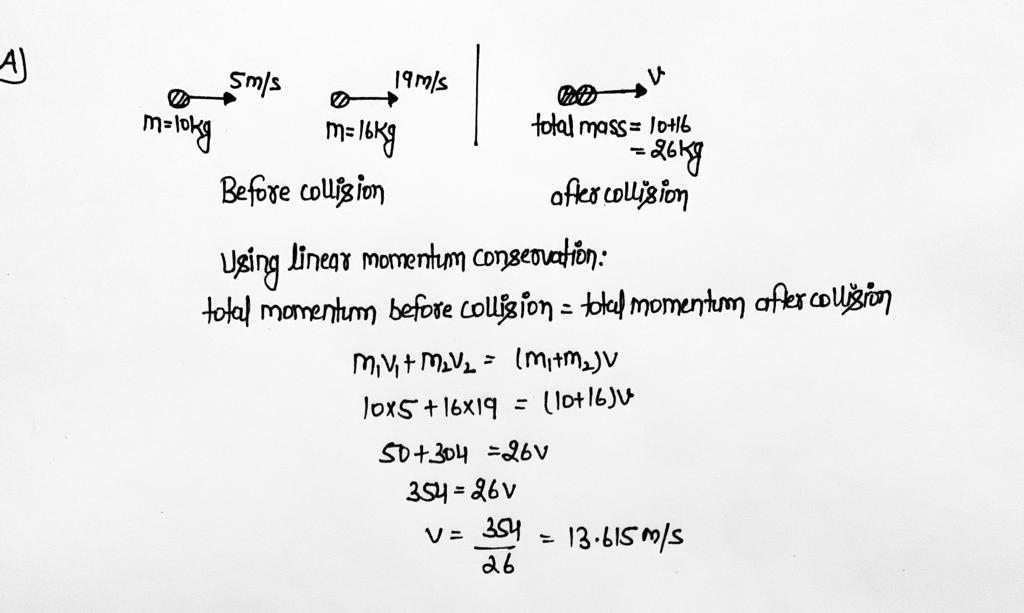 A)
5m/s 19m/s v
m=10kg m=16kg total mass= 10+16
= 26kg
Before collision after collision
Using linear momentum conservation:
total momentum before collision = total momentum after collision
m₁v₁+ m₂v₂ = (m₁+m₂)v
10x5 + 16x19 = (10+16)v
50+304 =26v
354=26v
v = 354/26 = 13.615 m/s